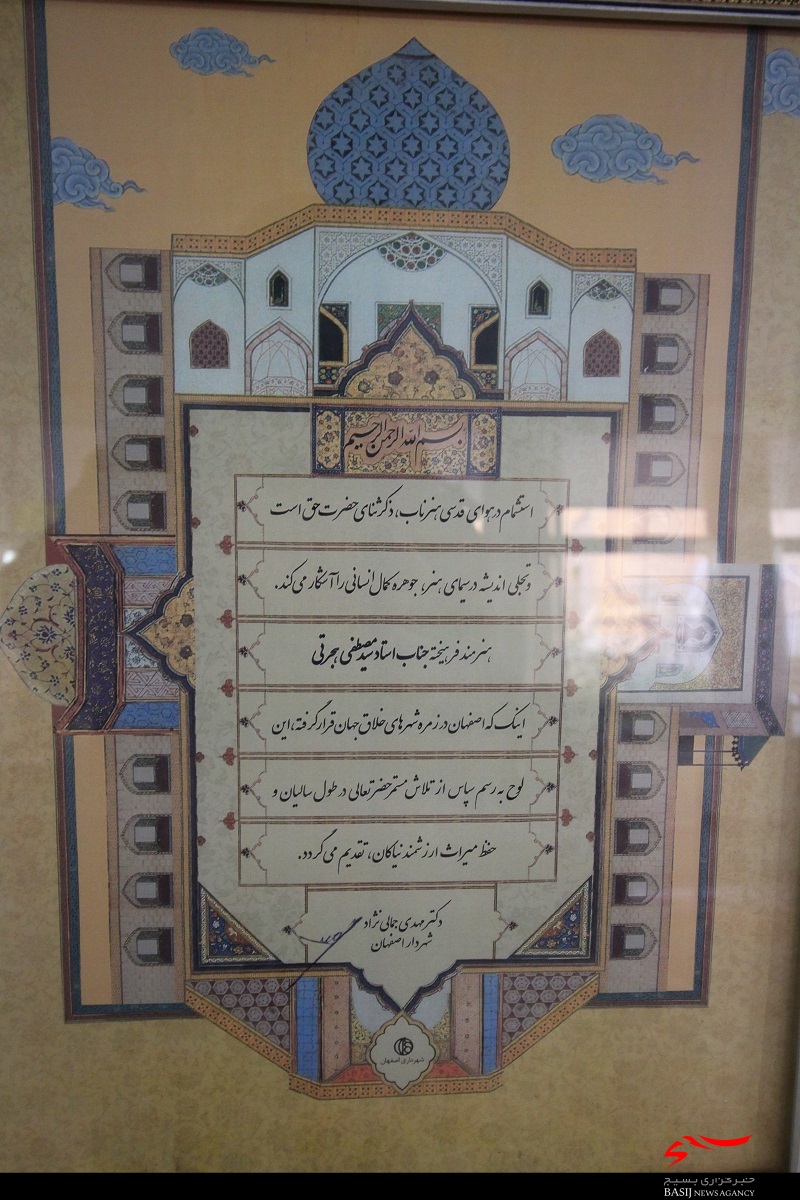 بسم الله الرحمن الرحیم
استشمام در هوای قدسی هنر ناب، ذکر ثنای حضرت حق است
و تجلی اندیشه در سیمای هنر، جوهره کمال انسانی را آشکار می‌کند.
هنرمند فرهیخته جناب استاد سید مصطفی هجرتی
اینک که اصفهان در زمره شهرهای خلاق جهان قرار گرفته، این
لوح به رسم سپاس از تلاش مستمر حضرتعالی در طول سالیان و
حفظ میراث ارزشمند نیاکان، تقدیم می‌گردد.
دکتر مهدی جمالی نژاد
شهردار اصفهان
شهرداری اصفهان
خبرگزاری بسیج
BASIJ NEWS AGANCY